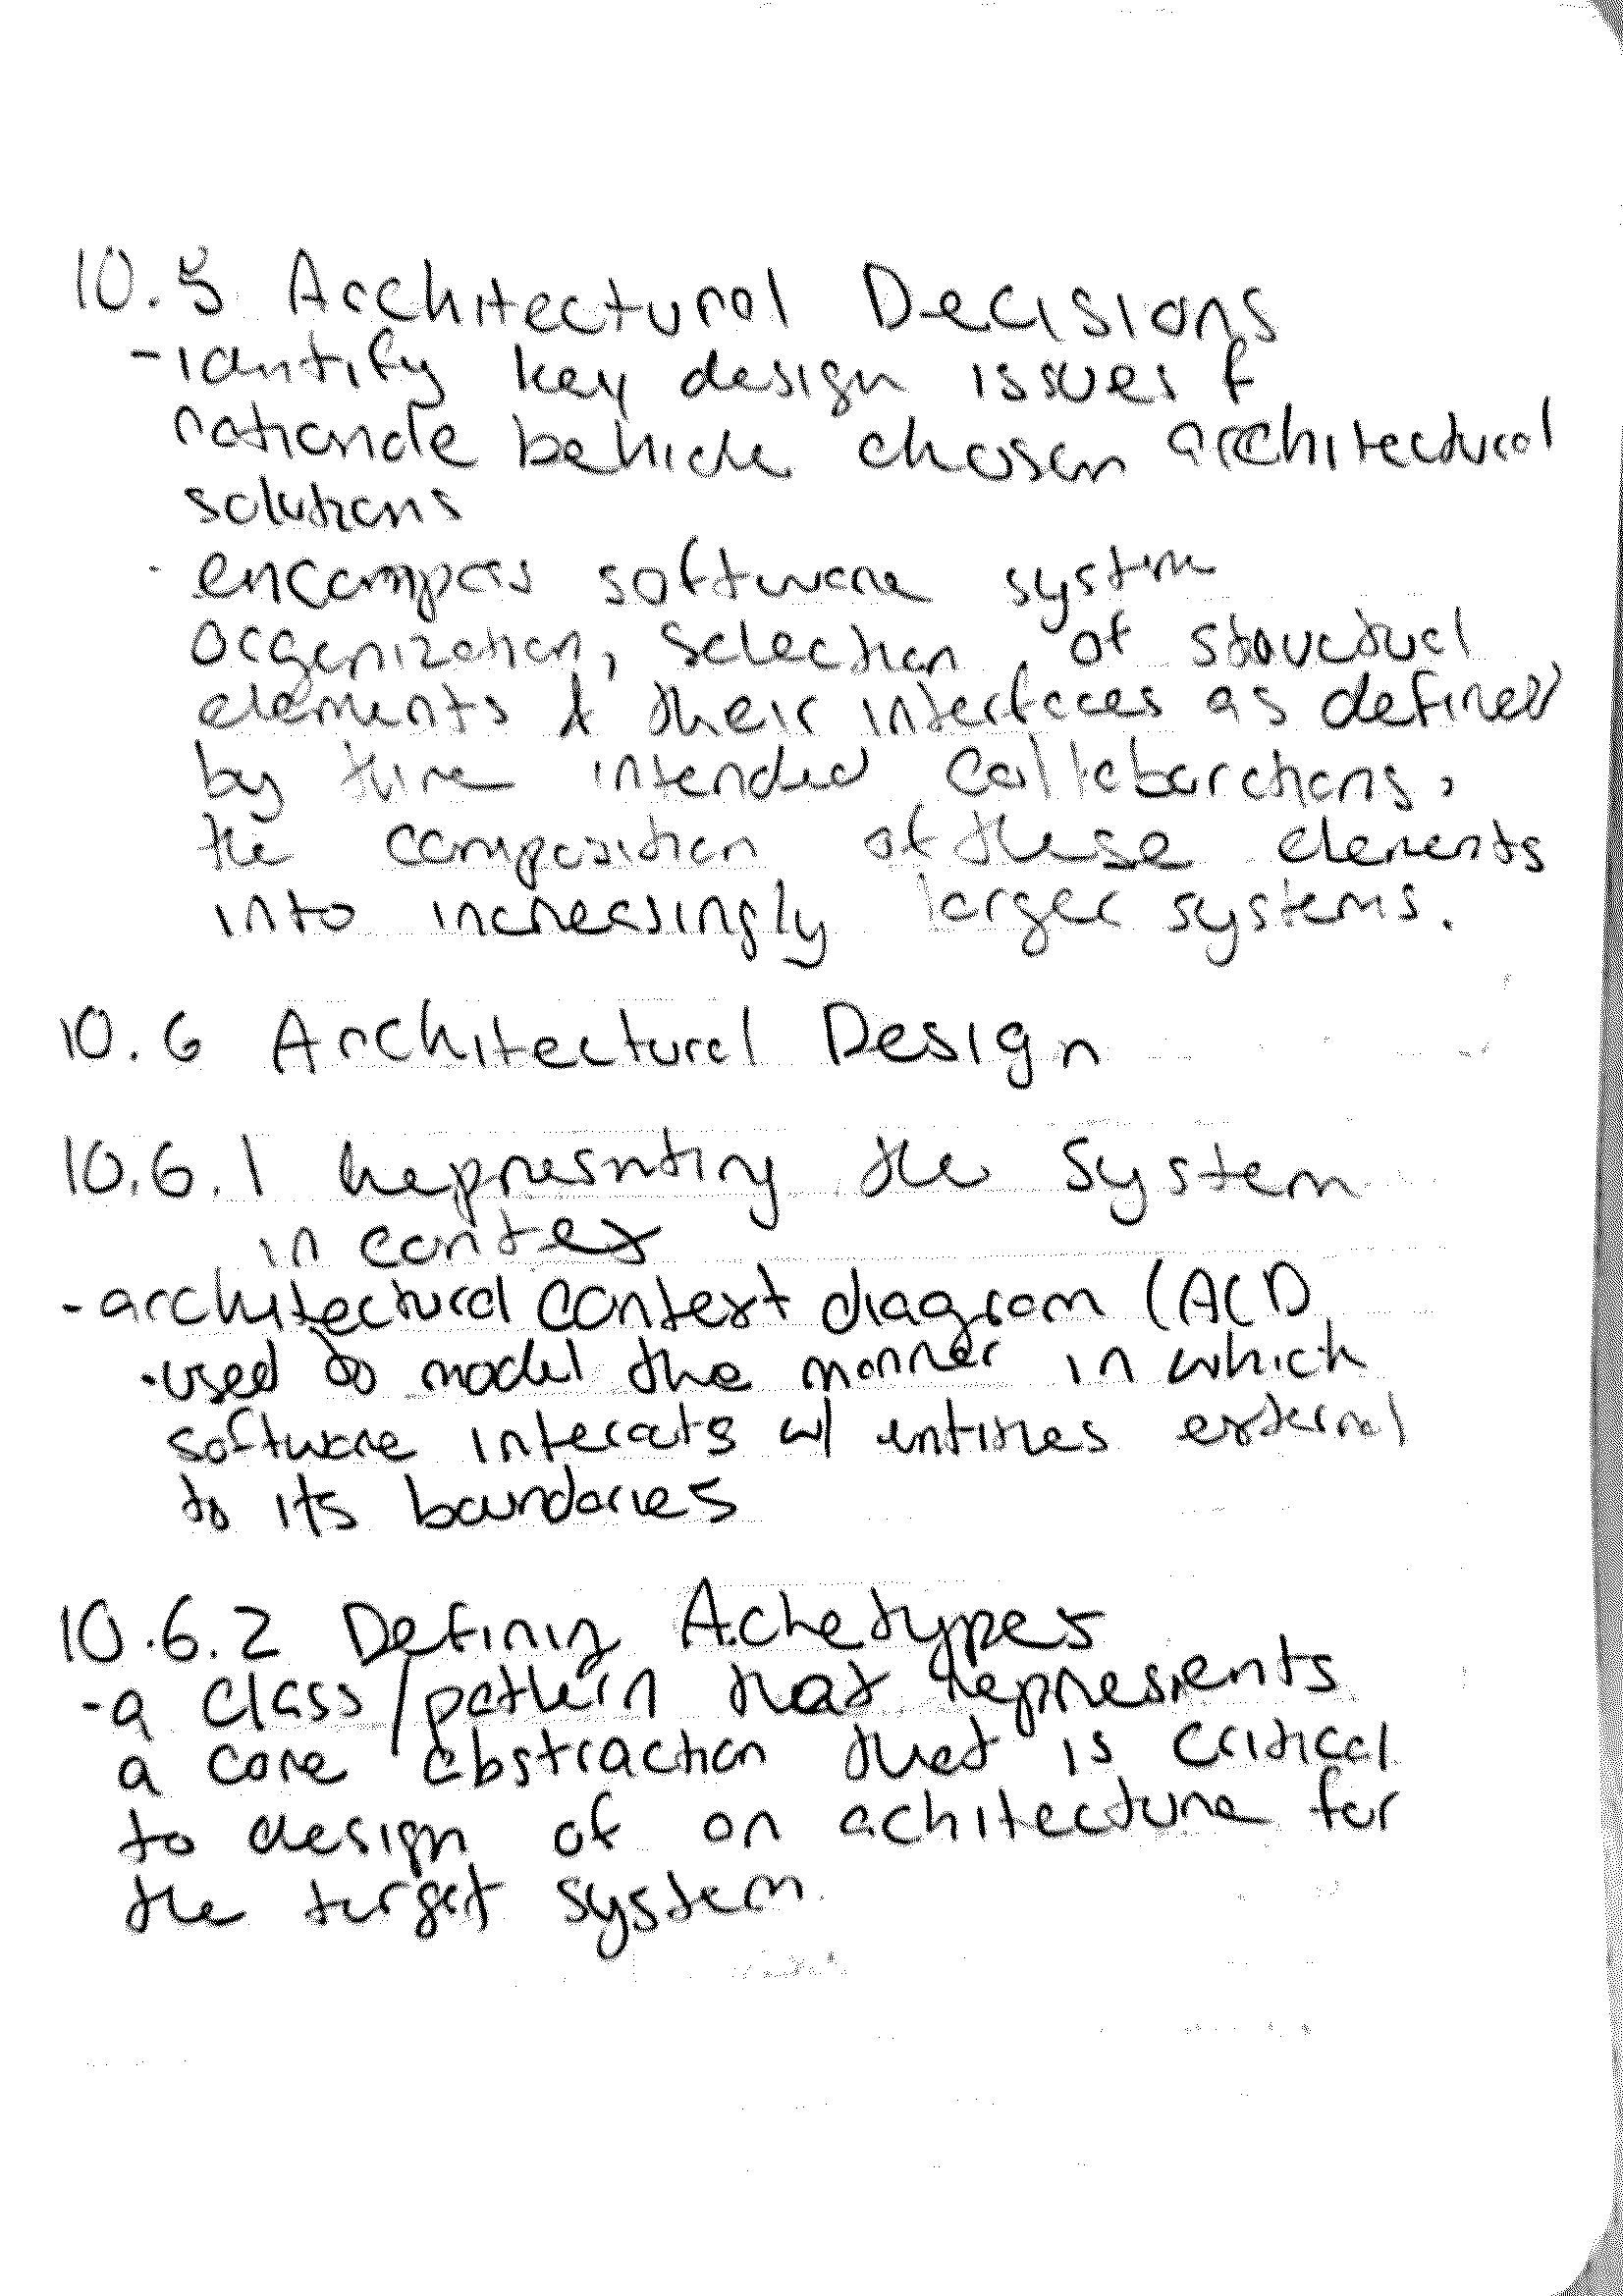 10.5 Architectural Decisions
- idntify key design issues &
rationale behide chosen architectural
solutions
· encompass software system
organization, selection, of stouctual
elements & their interfaces as defined
by thire intended collaborations,
the composition of these elements
into increasingly larger systems.
10.6 Architectural Design
10.6.1 Represnting the System
in contex
- architectural context diagram (ACD
· used to model the manner in which
software interacts w/ entities external
to its boundaries
10.6.2 Defining Achetypes
- a class/pattern that represents
a core abstraction that is critical
to design of an achitecture for
the target system.